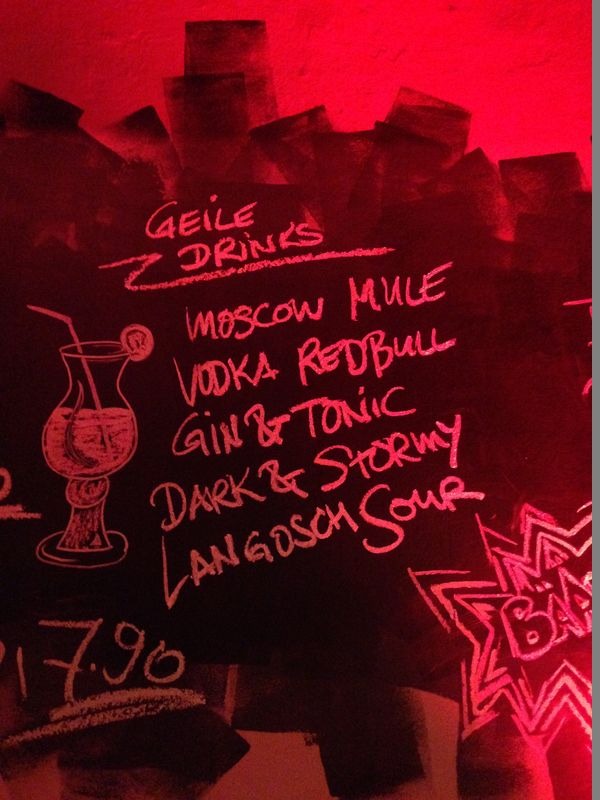 GEILE
DRINKS
MOSCOW MULE
VODKA REDBULL
GIN & TONIC
DARK & STORMY
LANGOSCH SOUR
7.90